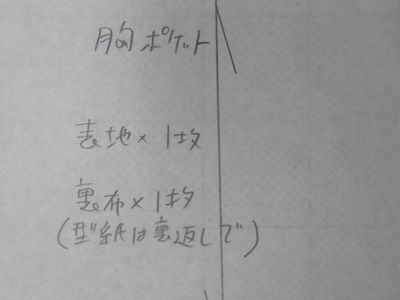 胸ポケット
表地×1枚
裏布×1枚
(型紙は裏返しで)